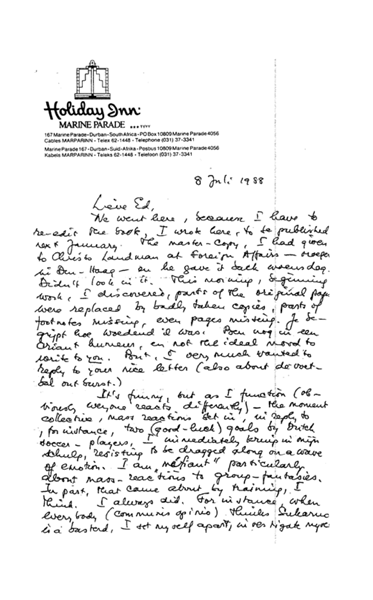 Holiday Inn
MARINE PARADE
167 Marine Parade-Durban-South Africa-PO Box 10809 Marine Parade 4056
Cables MARPARINN - Telex 62-1448 - Telephone (031) 37-3341
Marine Parade 167-Durban-Suid-Afrika-Posbus 10809 Marine Parade 4056
Kabels MARPARINN - Teleks 62-1448 - Telefoon (031) 37-3341
8 Juli 1988
Lieve Ed,
We went here, because I have to
re-edit the book, I wrote here, to be published
next January. The master-copy, I had given
to Christo Landman at Foreign Affairs - vroeger
in Den-Haag - en he gave it back woensdag.
Didn't look in it. This morning, beginning
work, I discovered, parts of the original pages
were replaced by badly taken copies, parts of
footnotes missing, even pages missing. Je be-
grijpt hoe woedend ik was. Ben nog in een
humeur, en not the ideal mood to
write to you. But, I very much wanted to
reply to your nice letter (also about de voet-
bal outburst.)
It's funny, but as I function (ob-
viously, everyone reacts differently) - the moment
collective, mass reactions set in, in reply to
, for instance, two (good-luck) goals by Dutch
soccer-players, I immediately terug in mijn
schulp, resisting to be dragged along on a wave
of emotion. I am "méfiant" particularly
about mass-reactions to group-fantasies.
In part, that came about by training, I
think. I always did. For instance, when
everybody (communis opinio) thinks Sukarno
is a bastard, I set myself apart, in